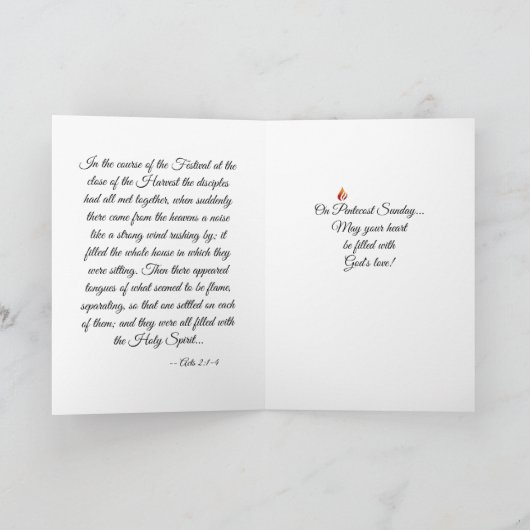 In the course of the Festival at the
close of the Harvest the disciples
had all met together, when suddenly
there came from the heavens a noise
like a strong wind rushing by; it
filled the whole house in which they
were sitting. Then there appeared
tongues of what seemed to be flame,
separating, so that one settled on each
of them; and they were all filled with
the Holy Spirit...
-- Acts 2:1-4
On Pentecost Sunday...
May your heart
be filled with
God's love!